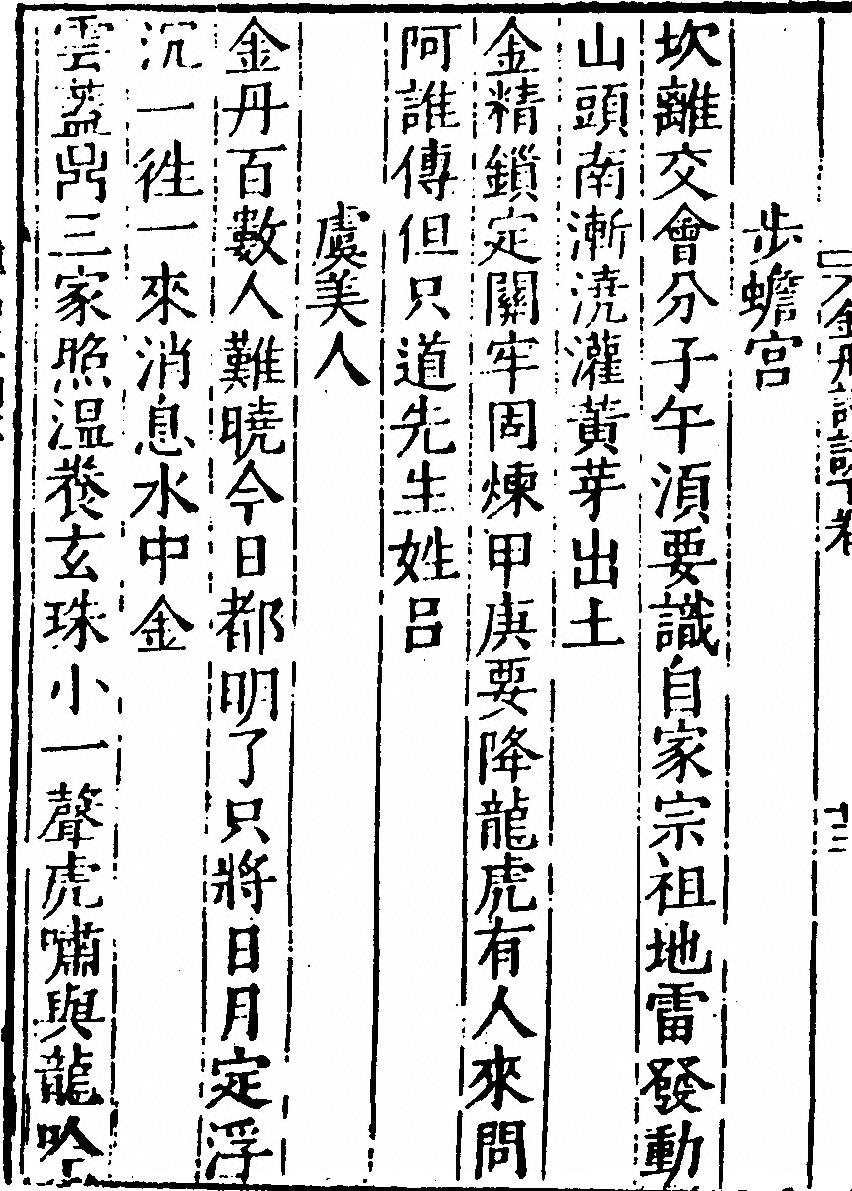 金丹詩訣下卷
十三
步蟾宮
坎離交會分子午須要識自家宗祖地雷發動
山頭南漸澆灌黃芽出土
金精鎖定關牢固煉甲庚要降龍虎有人來問
阿誰傳但只道先生姓吕
虞美人
金丹百數人難曉今日都明了只將日月定浮
沉一徃一來消息水中金
雲蓋鼎三家照温養玄珠小一聲虎嘯與龍吟